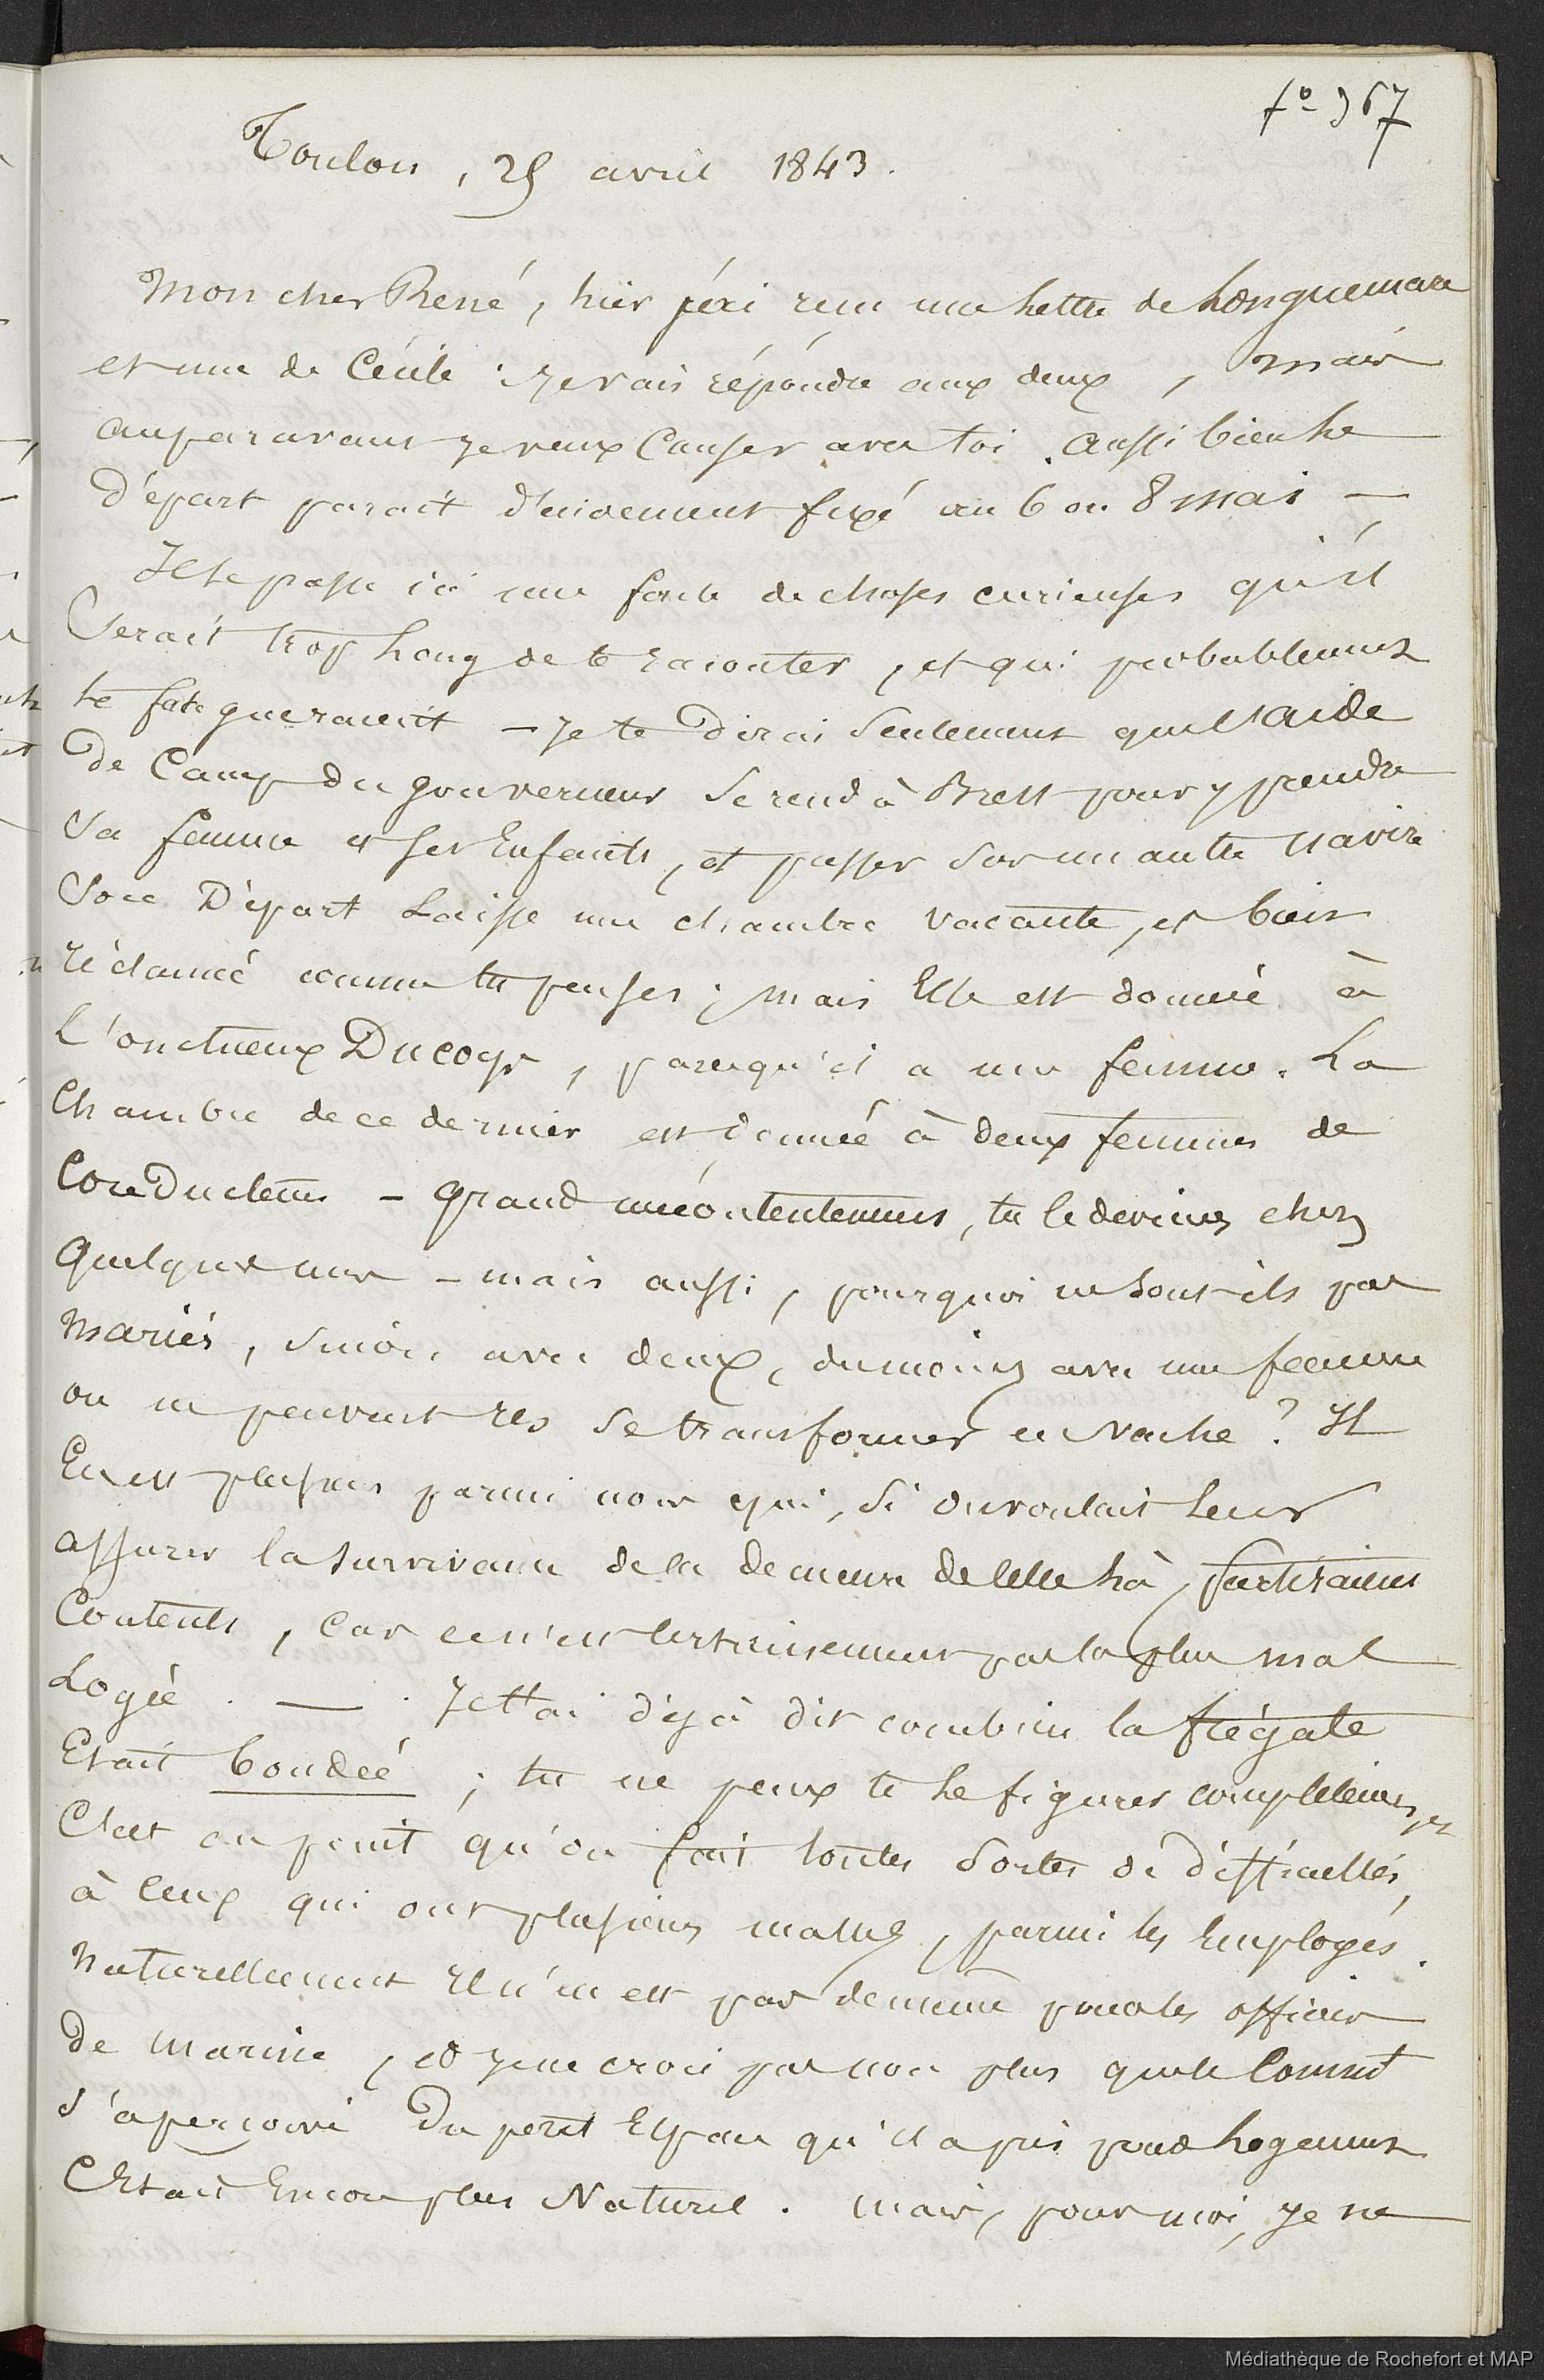 fo 367
Toulon, 25 avril 1843.
Mon cher René, hier j'ai reçu une Lettre de Longuemare
et une de Cécile : je vais répondre aux deux, mais
auparavant je veux Causer avec toi. Aussi bien le
Départ parait décidement fixé au 6 ou 8 mai —
Il se passe ici une foule de choses curieuses qu'il
Serait trop Long de te raconter, et qui probablement
te fatigueraient — Je te Dirai Seulement que l'aide
De Camp du gouverneur Se rend à Brest pour y prendre
Sa femme et Ses Enfants, et passer Sur un autre navire
Son Départ Laisse une chambre vacante, et bien
réclamée comme tu penses ; mais Elle est donnée à
L'onctueux Ducoqs, parcequ'il a une femme. La
Chambre de ce dernier est donnée à deux femmes de
Conducteurs – grand mécontentement, tu le devines chez
quelques uns – mais aussi, pourquoi ne Sont-ils pas
mariés, Sinon avec deux, du moins avec une femme
ou ne peuvent-ils Se transformer en Vache ? Il
En est plusieurs parmi nous qui, Si on voulait Leur
assurer la Survivance de la demeure de celle Là, partiraient
Contents, Car ce n'est certainement pas la plus mal
Logée. — Je t'ai déjà dit combien la frégate
Etait bondée ; tu ne peux te le figurer complètement,
C'est au point qu'on fait toutes Sortes de difficultés,
à Ceux qui ont plusieurs malles, parmi les Employés.
Naturellement Il n'en est pas de même pour les officiers
De marine, et je ne crois pas non plus que le Commt
S'aperçoive Du petit Espace qu'il a pris pour Logement
C'Etait Encore plus Naturel. Mais, pour moi, Je ne
Médiathèque de Rochefort et MAP